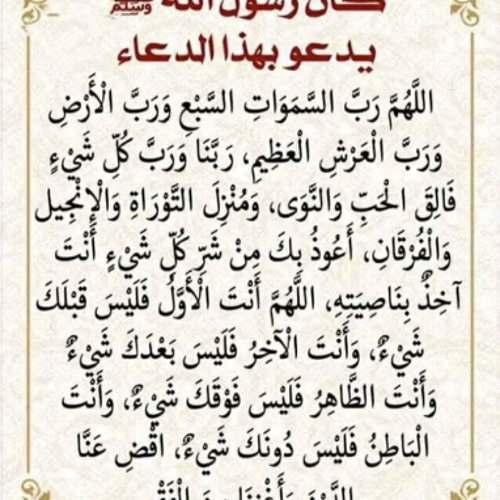 كان رسول الله ﷺ
يدعو بهذا الدعاء
اللَّهُمَّ رَبَّ السَّمَوَاتِ السَّبْعِ وَرَبَّ الْأَرْضِ
وَرَبَّ الْعَرْشِ الْعَظِيمِ، رَبَّنَا وَرَبَّ كُلِّ شَيْءٍ
فَالِقَ الْحَبِّ وَالنَّوَى، وَمُنْزِلَ التَّوْرَاةِ وَالْإِنْجِيلِ
وَالْفُرْقَانِ، أَعُوذُ بِكَ مِنْ شَرِّ كُلِّ شَيْءٍ أَنْتَ
آخِذٌ بِنَاصِيَتِهِ، اللَّهُمَّ أَنْتَ الْأَوَّلُ فَلَيْسَ قَبْلَكَ
شَيْءٌ، وَأَنْتَ الْآخِرُ فَلَيْسَ بَعْدَكَ شَيْءٌ
وَأَنْتَ الظَّاهِرُ فَلَيْسَ فَوْقَكَ شَيْءٌ، وَأَنْتَ
الْبَاطِنُ فَلَيْسَ دُونَكَ شَيْءٌ، اقْضِ عَنَّا